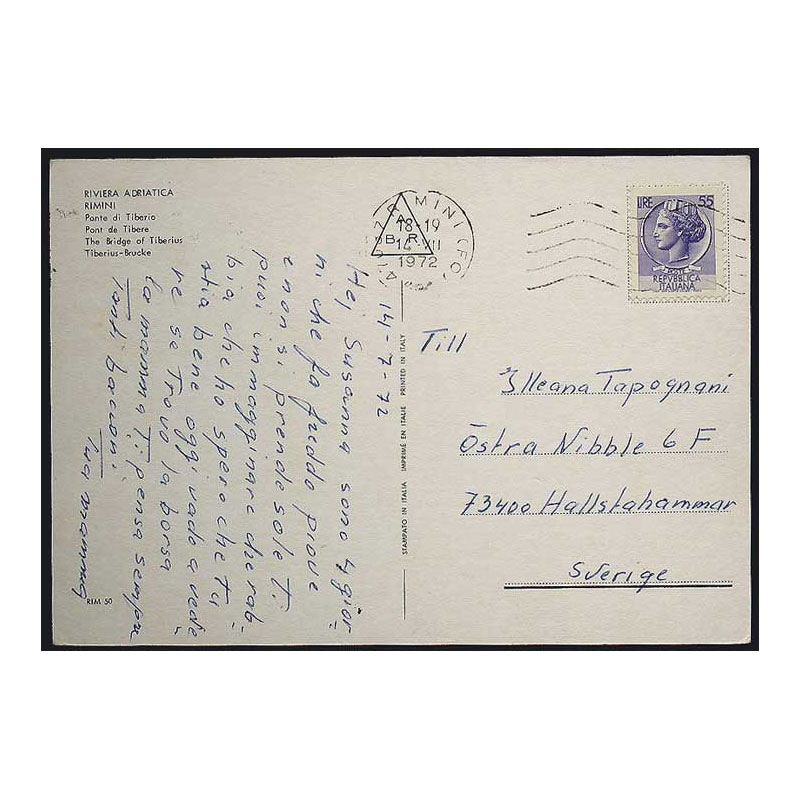 RIVIERA ADRIATICA
RIMINI
Ponte di Tiberio
Pont de Tibere
The Bridge of Tiberius
Tiberius-Brucke
14-7-72
Hej Susanna sono 4 gior
ni che fa freddo piove
e non si prende sole t.
puoi immagginare che rab-
bia che ho spero che tu
stia bene oggi vado a vede
re se trovo la borsa
la mamma T. pensa sempre
Tanti baccioni
Tua mamma
RIM 50
STAMPATO IN ITALIA IMPRIMÉ EN ITALIE PRINTED IN ITALY
RIMINI (FO)
A
B R
18-19
14 VII
1972
LIRE 55
POSTE
REPVBBLICA
ITALIANA
Till
Illeana Tapognani
Östra Nibble 6 F
73400 Hallstahammar
Sverige